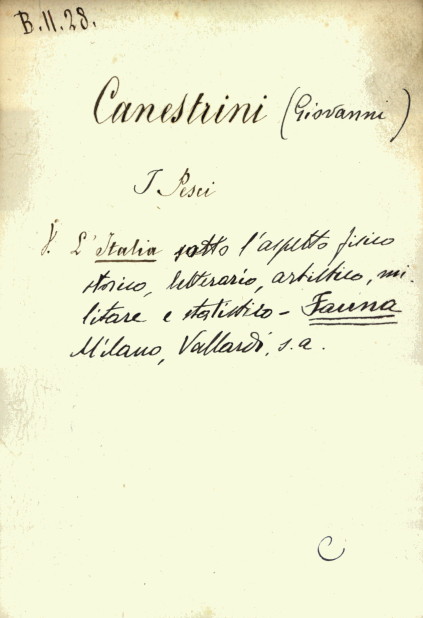 B.11.28.
Canestrini (Giovanni)
I Pesci
V. L'Italia sotto l'aspetto fisico
storico, letterario, artistico, mi-
litare e statistico - Fauna
Milano, Vallardi, s.a.
C